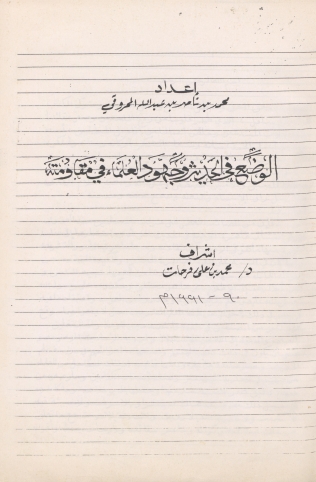 إعداد
محمد بن ناصر بن عبدالله المحروقي
الوضع في الحديث وجهود العلماء في مقاومته
اشراف
د/ محمد بن علي فرحات
٩٠ - ١٩٩١م